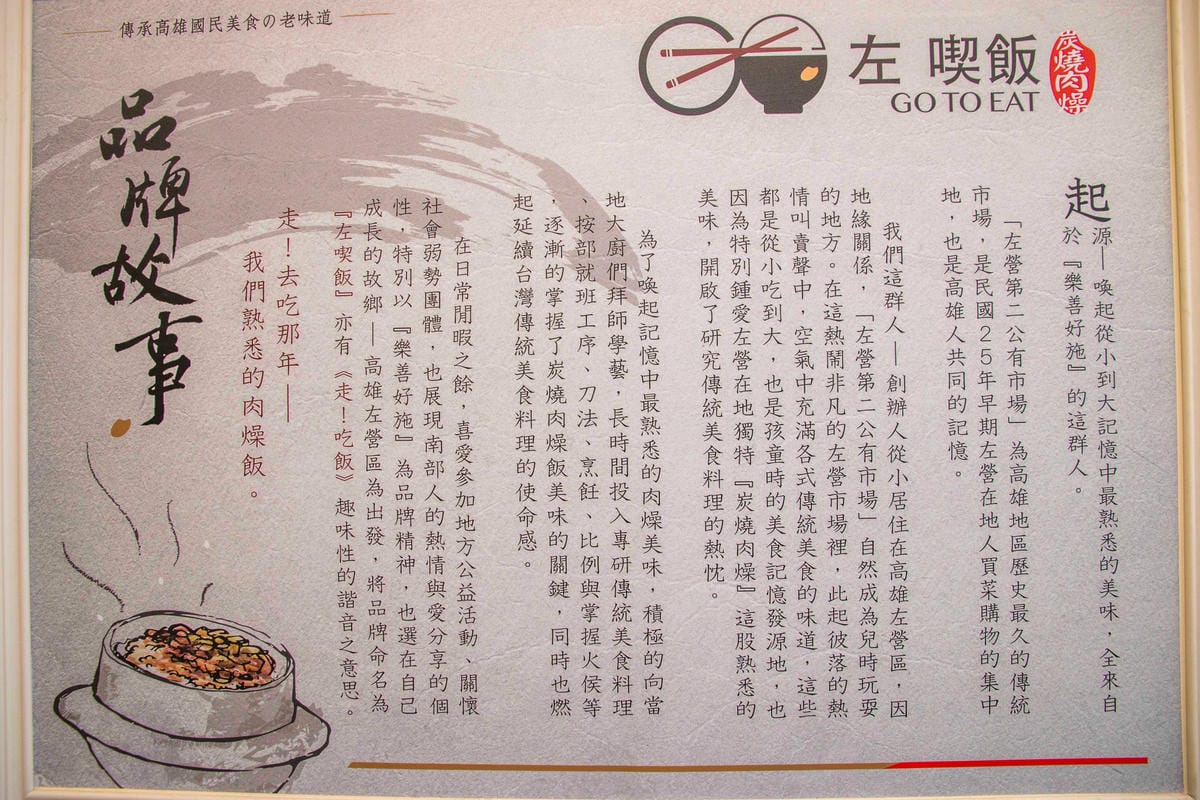 傳承高雄國民美食の老味道
左 喫飯
GO TO EAT
炭燒肉燥
品牌故事
起源—喚起從小到大記憶中最熟悉的美味，全來自
於『樂善好施』的這群人。
「左營第二公有市場」為高雄地區歷史最久的傳統
市場，是民國25年早期左營在地人買菜購物的集中
地，也是高雄人共同的記憶。
我們這群人—創辦人從小居住在高雄左營區，因
地緣關係，「左營第二公有市場」自然成為兒時玩耍
的地方。在這熱鬧非凡的左營市場裡，此起彼落的熱
情叫賣聲中，空氣中充滿各式傳統美食的味道，這些
都是從小吃到大，也是孩童時的美食記憶發源地，也
因為特別鍾愛左營在地獨特『炭燒肉燥』這股熟悉的
美味，開啟了研究傳統美食料理的熱忱。
為了喚起記憶中最熟悉的肉燥美味，積極的向當
地大廚們拜師學藝，長時間投入專研傳統美食料理
、按部就班工序、刀法、烹飪、比例與掌握火侯等
，逐漸的掌握了炭燒肉燥飯美味的關鍵，同時也燃
起延續台灣傳統美食料理的使命感。
在日常閒暇之餘，喜愛參加地方公益活動、關懷
社會弱勢團體，也展現南部人的熱情與愛分享的個
性，特別以『樂善好施』為品牌精神，也選在自己
成長的故鄉—高雄左營區為出發，將品牌命名為
『左喫飯』亦有《走！吃飯》趣味性的諧音之意思。
走！去吃那年—
我們熟悉的肉燥飯。